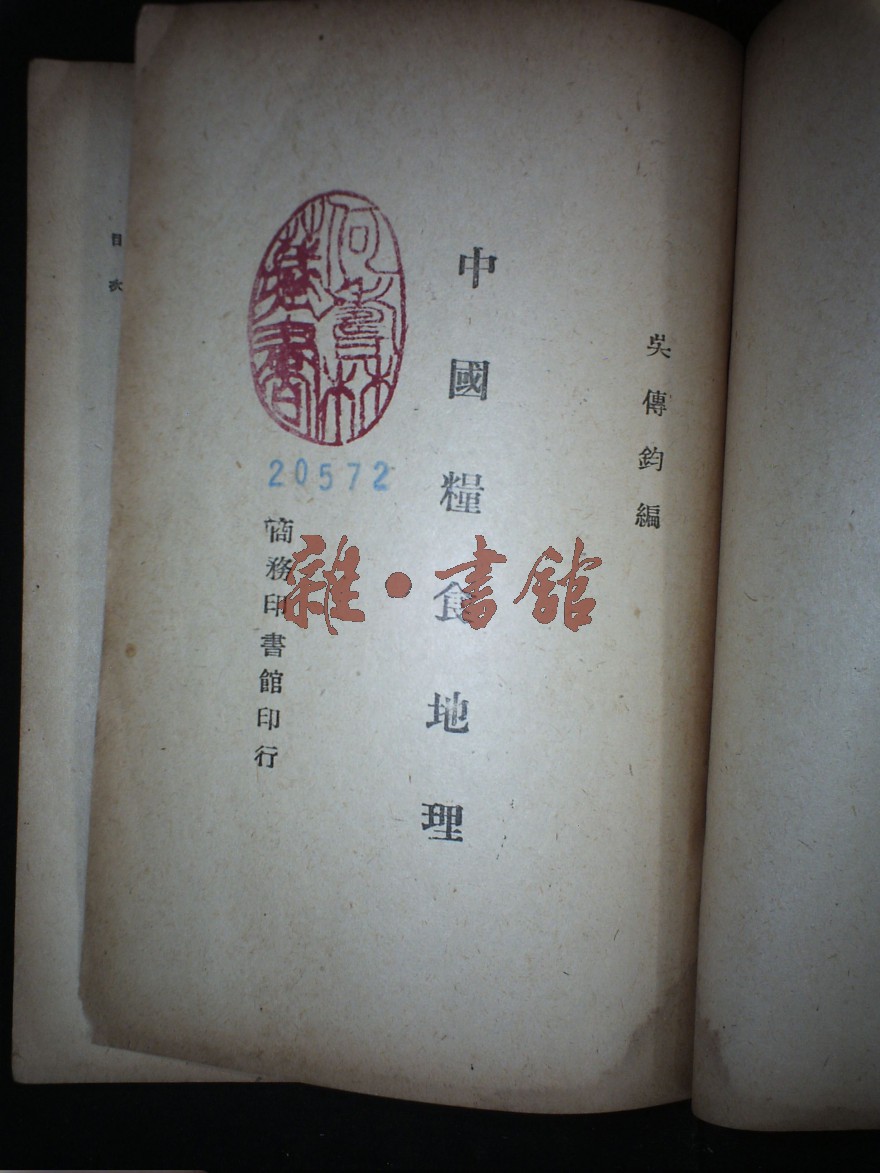 吳傳鈞編
中國糧食地理
商務印書館印行
20572
雜·書館
目次